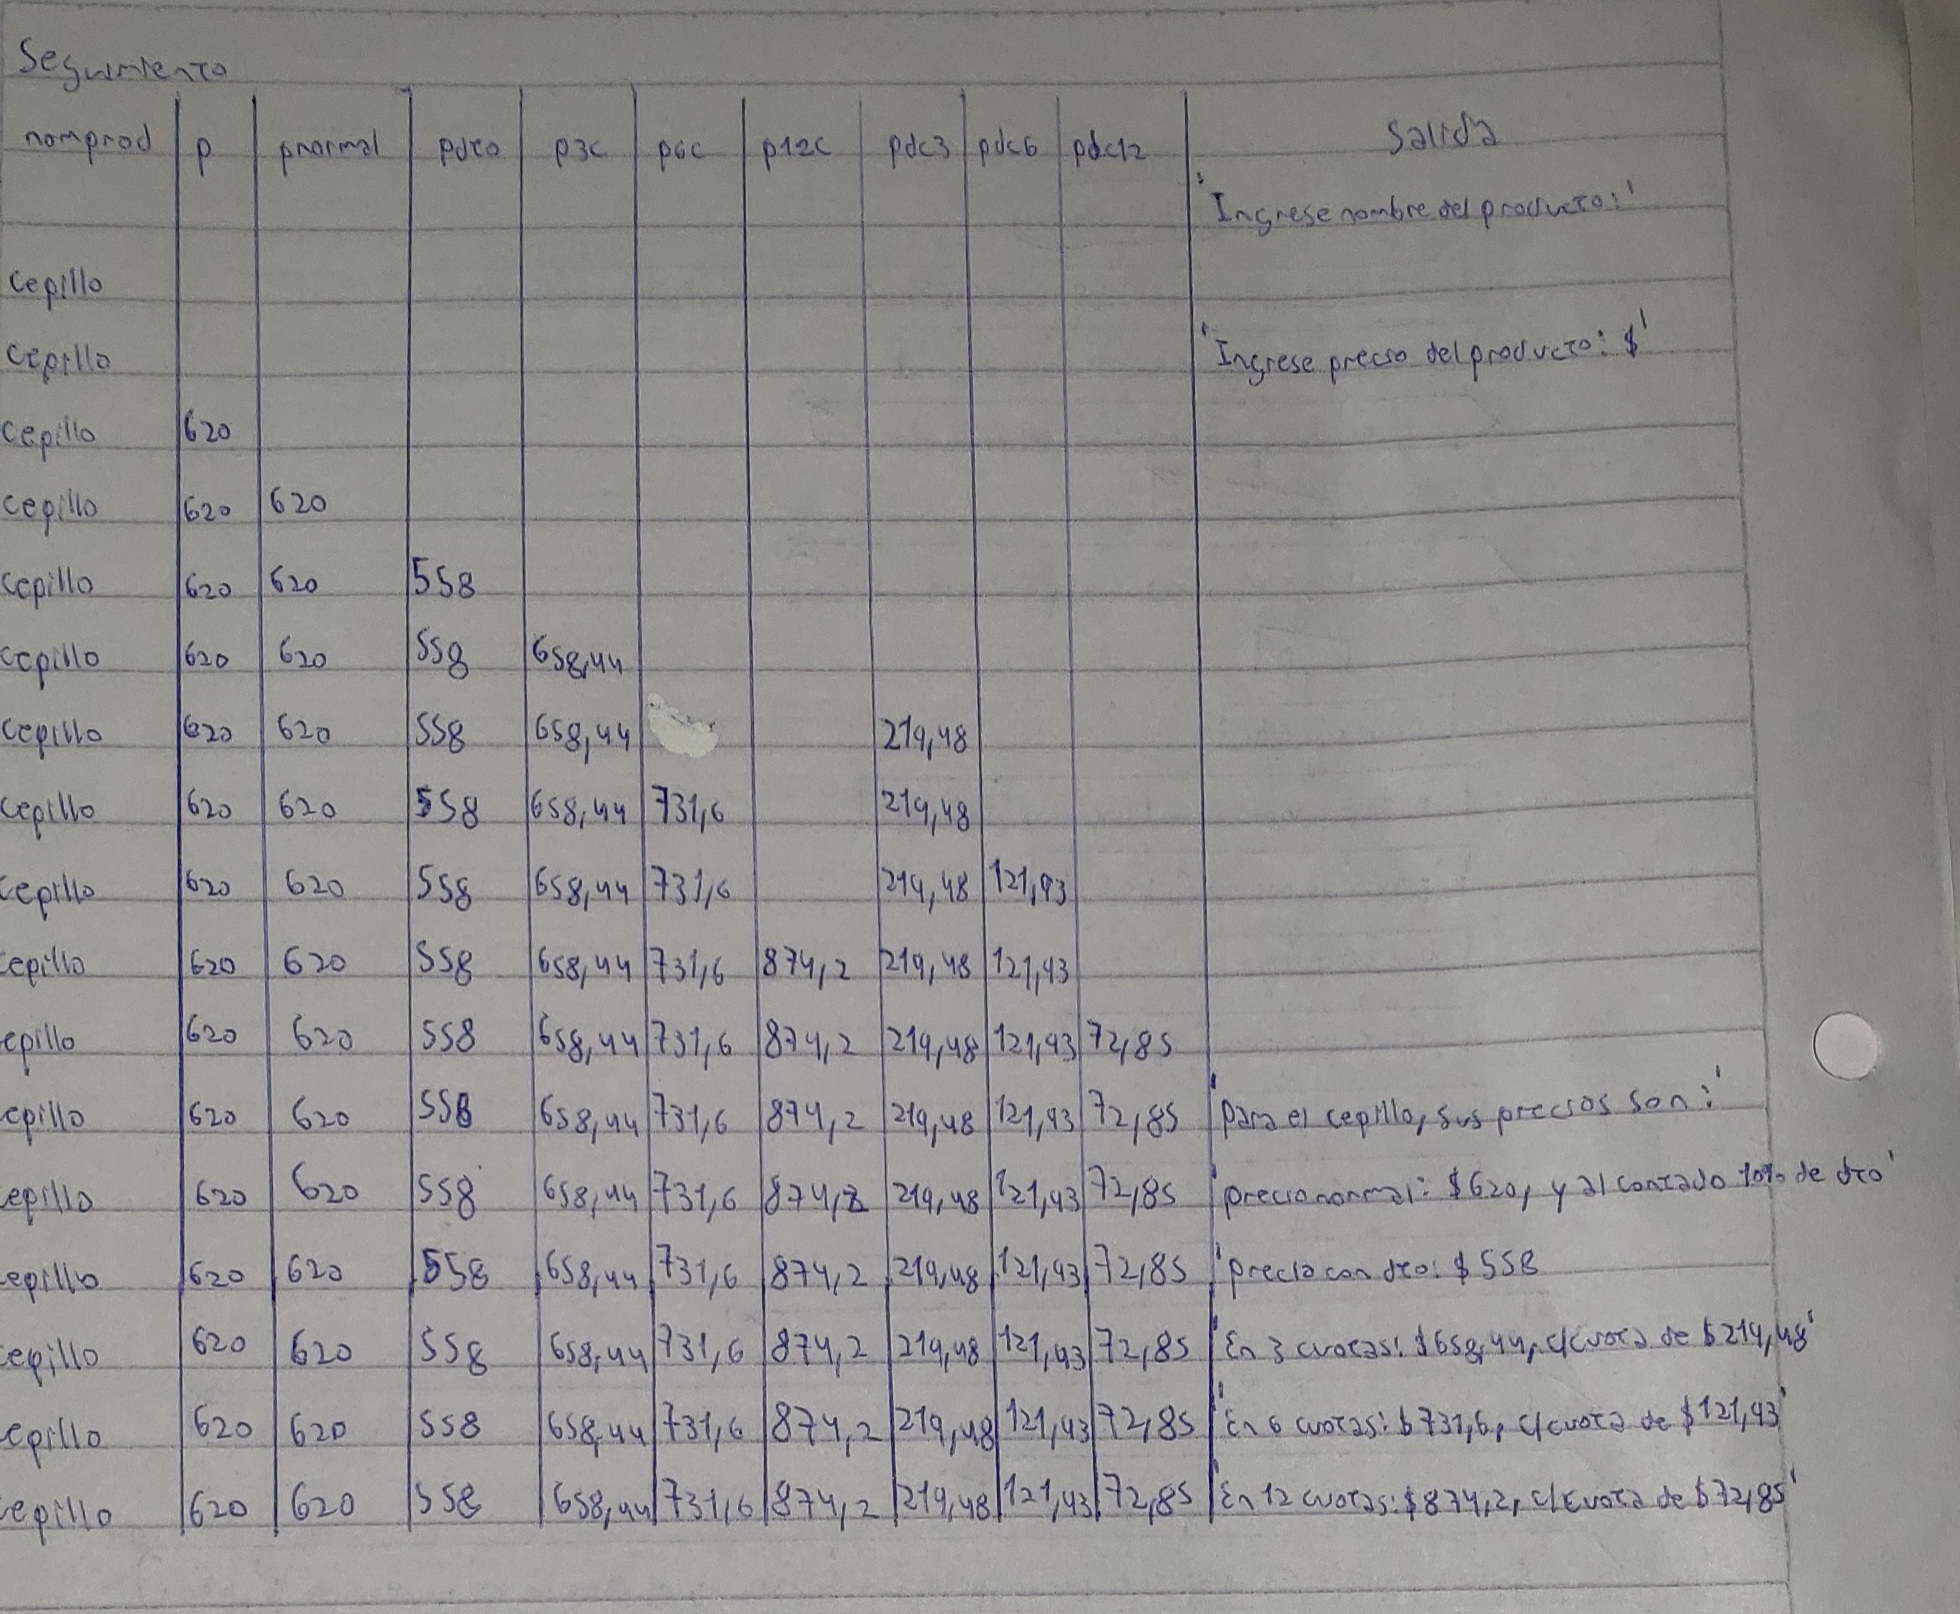 Seguimiento
nomprod p pnormal pdto p3c p6c p12c pdc3 pdc6 pdc12 Salida
'Ingrese nombre del producto:'
cepillo
cepillo 'Ingrese precio del producto: $'
cepillo 620
cepillo 620 620
cepillo 620 620 558
cepillo 620 620 558 658,44
cepillo 620 620 558 658,44 219,48
cepillo 620 620 558 658,44 731,6 219,48
cepillo 620 620 558 658,44 731,6 219,48 121,93
cepillo 620 620 558 658,44 731,6 874,2 219,48 121,93
epillo 620 620 558 658,44 731,6 874,2 219,48 121,93 72,85
epillo 620 620 558 658,44 731,6 874,2 219,48 121,93 72,85 'para el cepillo, sus precios son:'
epillo 620 620 558 658,44 731,6 874,2 219,48 121,93 72,85 'precio normal: $620, y al contado 10% de dto'
epillo 620 620 558 658,44 731,6 874,2 219,48 121,93 72,85 'precio con dto: $558
cepillo 620 620 558 658,44 731,6 874,2 219,48 121,93 72,85 'En 3 cuotas: $658,44, c/cuota de $219,48'
cepillo 620 620 558 658,44 731,6 874,2 219,48 121,93 72,85 'En 6 cuotas: $731,6, c/cuota de $121,93'
cepillo 620 620 558 658,44 731,6 874,2 219,48 121,93 72,85 'En 12 cuotas: $874,2, c/cuota de $72,85'